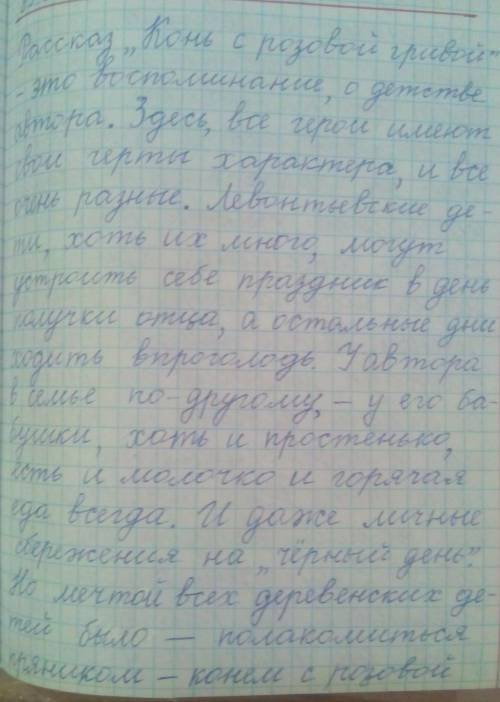 Рассказ „Конь с розовой гривой"
- это воспоминание, о детстве
автора. Здесь, все герои имеют
свои черты характера, и все
очень разные. Левонтьевские де-
ти, хоть их много, могут
устроить себе праздник в день
получки отца, а остальные дни
ходить впроголодь. У автора
в семье по-другому, - у его ба-
бушки, хоть и простенько,
есть и молочко и горячая
еда всегда. И даже личные
сбережения на „чёрный день".
Но мечтой всех деревенских де-
тей было — полакомиться
пряником - конем с розовой